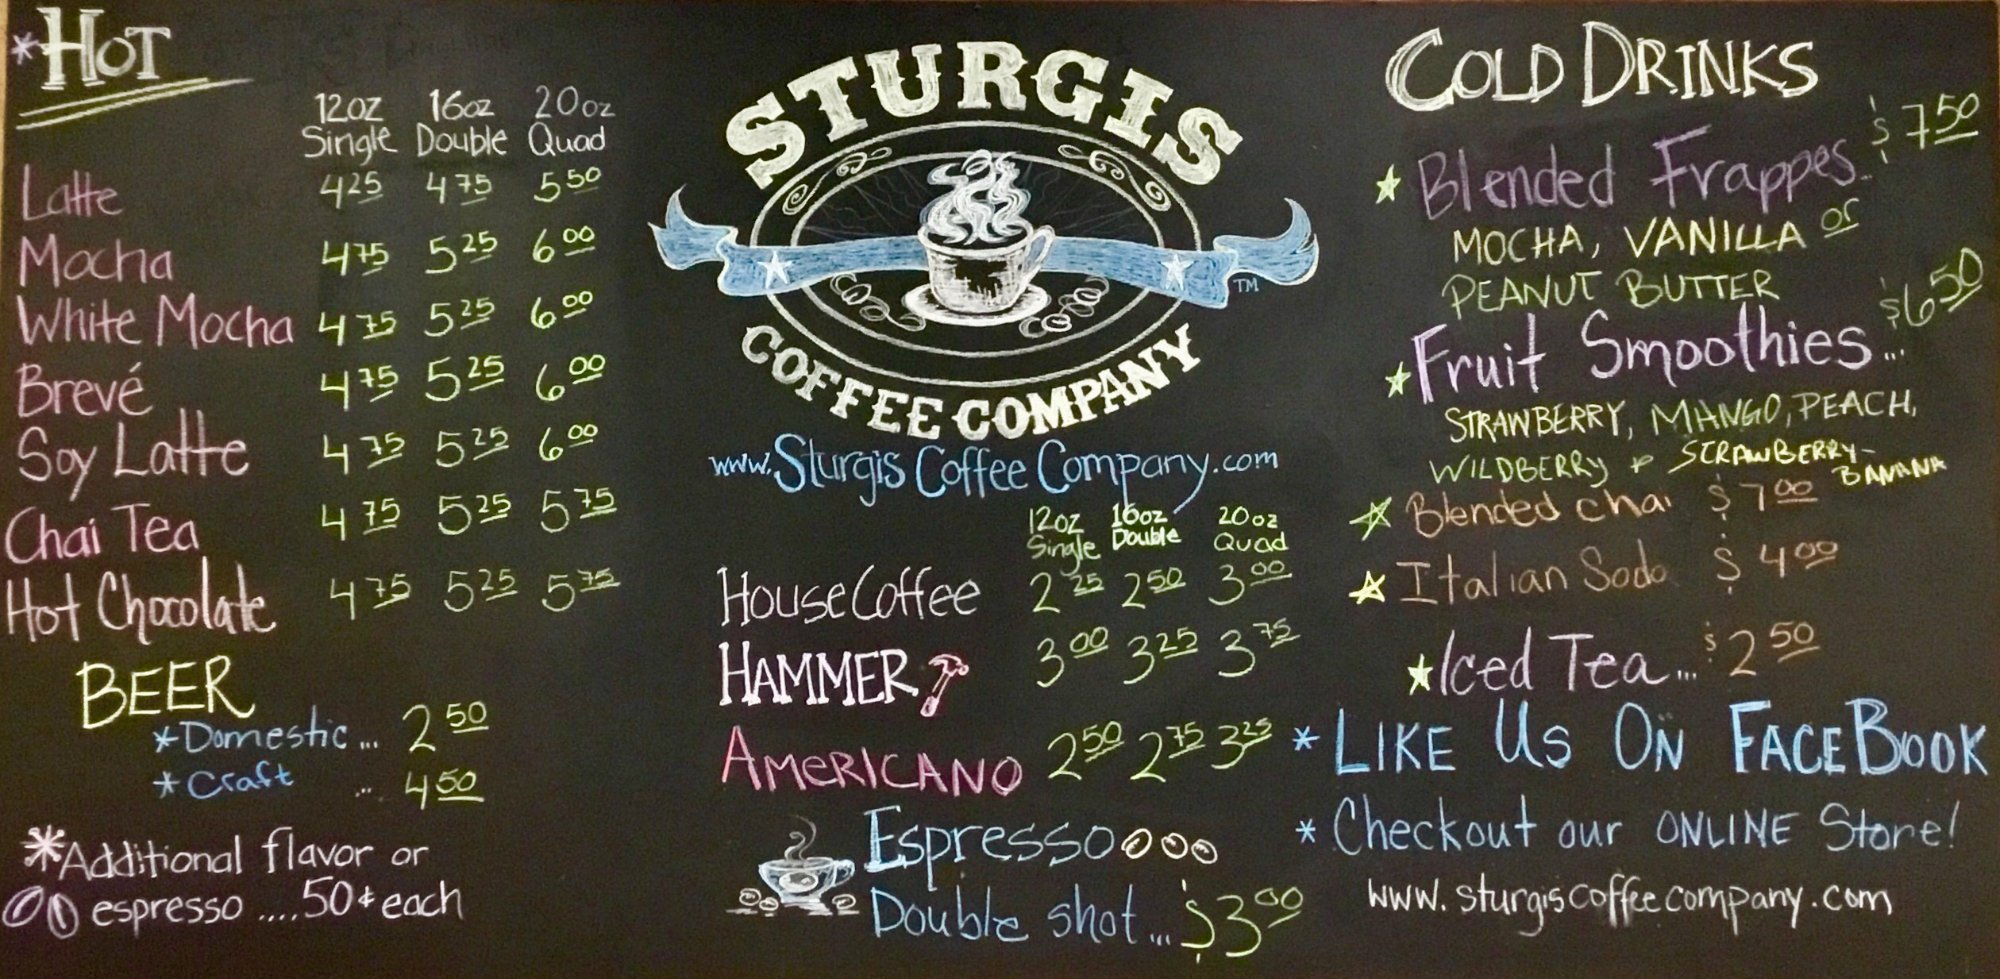 *HOT
12oz 16oz 20oz
Single Double Quad
Latte 425 475 550
Mocha 475 525 600
White Mocha 475 525 600
Brevé 475 525 600
Soy Latte 475 525 600
Chai Tea 475 525 575
Hot Chocolate 475 525 575
BEER
*Domestic... 250
*Craft ... 450
*Additional flavor or
espresso ....50¢ each
STURGIS
TM
COFFEE COMPANY
www.SturgisCoffeeCompany.com
12oz 16oz 20oz
Single Double Quad
House Coffee 225 250 300
HAMMER 300 325 375
AMERICANO 250 275 325
Espresso
Double shot... $300
COLD DRINKS
Blended Frappes... $750
MOCHA, VANILLA or
PEANUT BUTTER
Fruit Smoothies... $650
STRAWBERRY, MANGO, PEACH,
WILDBERRY & STRAWBERRY-
BANANA
Blended chai $700
Italian Soda $400
Iced Tea... $250
* LIKE Us ON FACEBOOK
* Checkout our ONLINE Store!
www.sturgiscoffeecompany.com